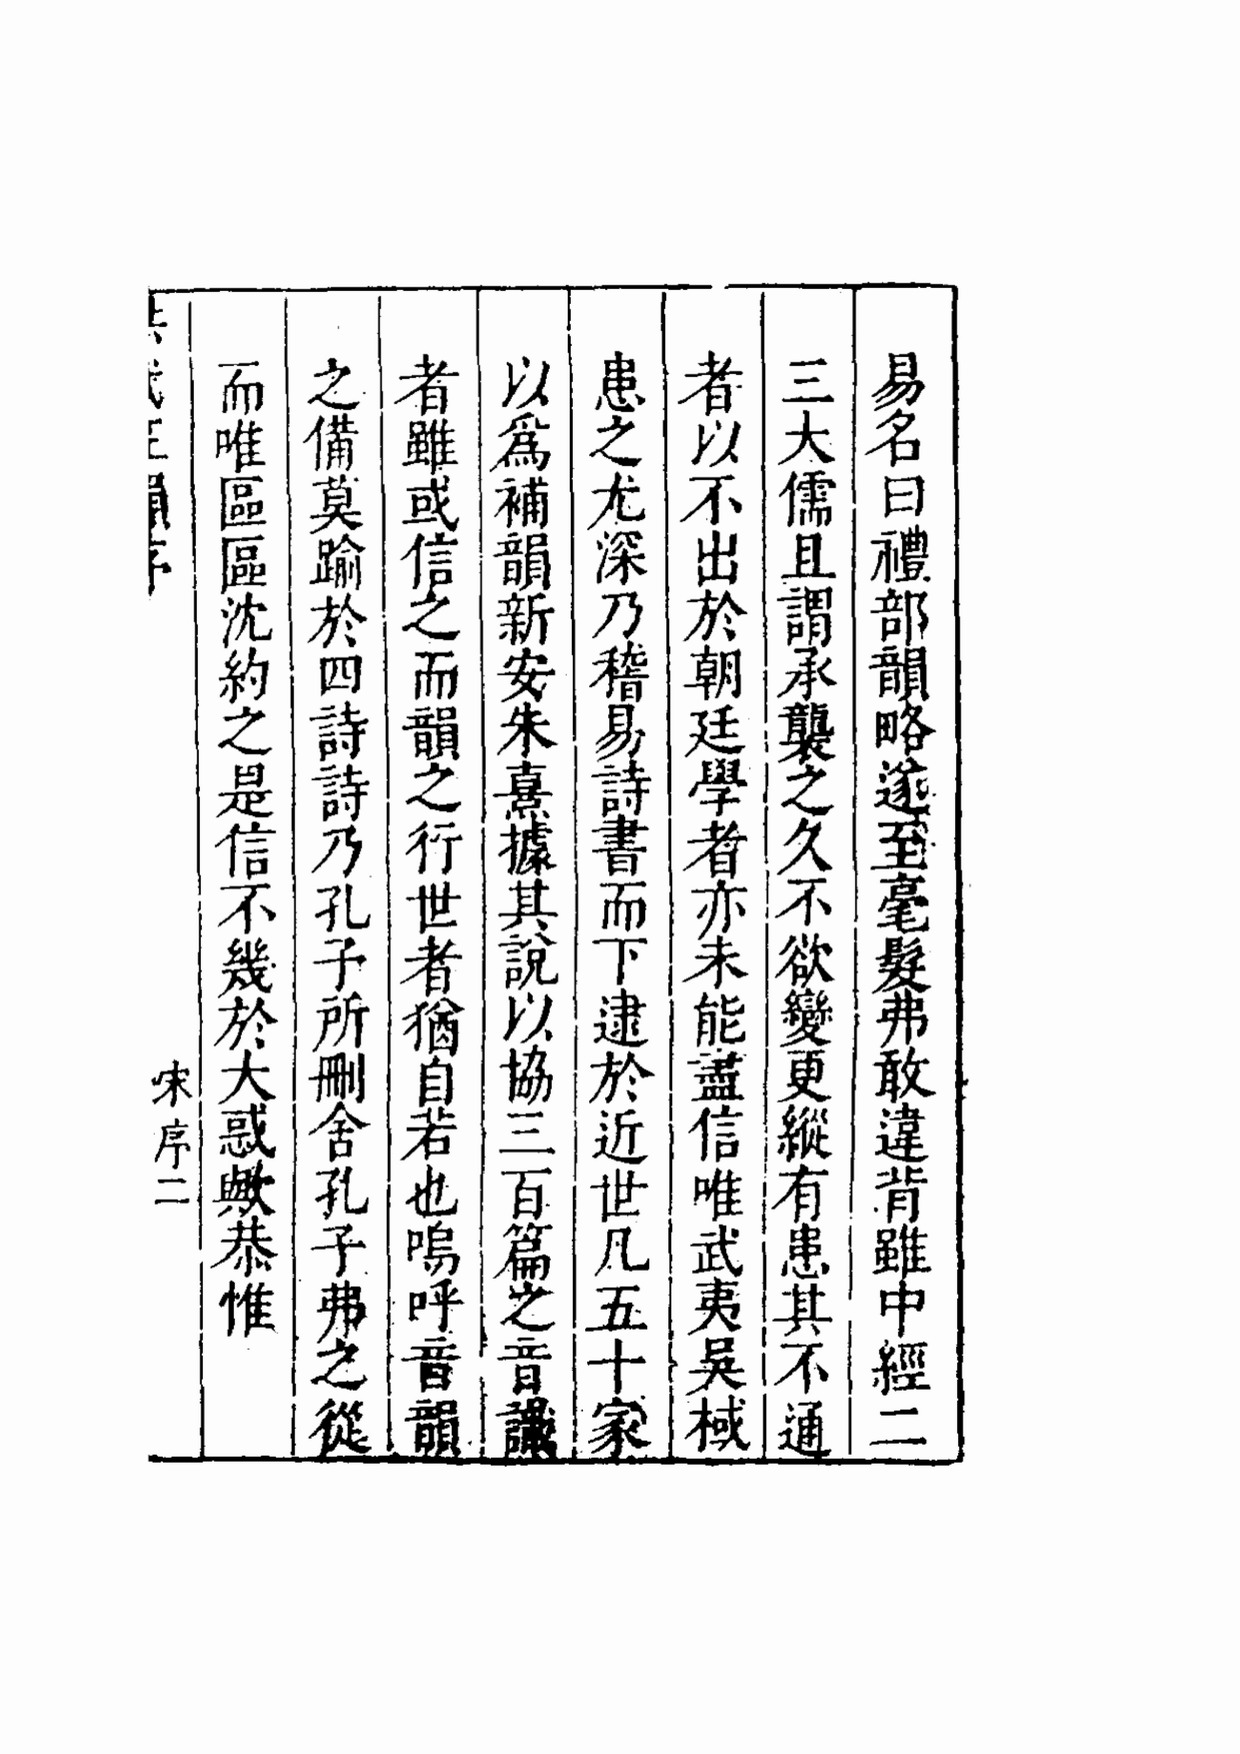 易名曰禮部韻略遂至毫髮弗敢違背雖中經二
三大儒且謂承襲之久不欲變更縱有患其不通
者以不出於朝廷學者亦未能盡信唯武夷吳棫
患之尤深乃稽易詩書而下逮於近世凡五十家
以爲補韻新安朱熹據其說以協三百篇之音識
者雖或信之而韻之行世者猶自若也嗚呼音韻
之備莫踰於四詩詩乃孔子所刪舍孔子弗之從
而唯區區沈約之是信不幾於大惑歟恭惟
洪武正韻序
宋序二